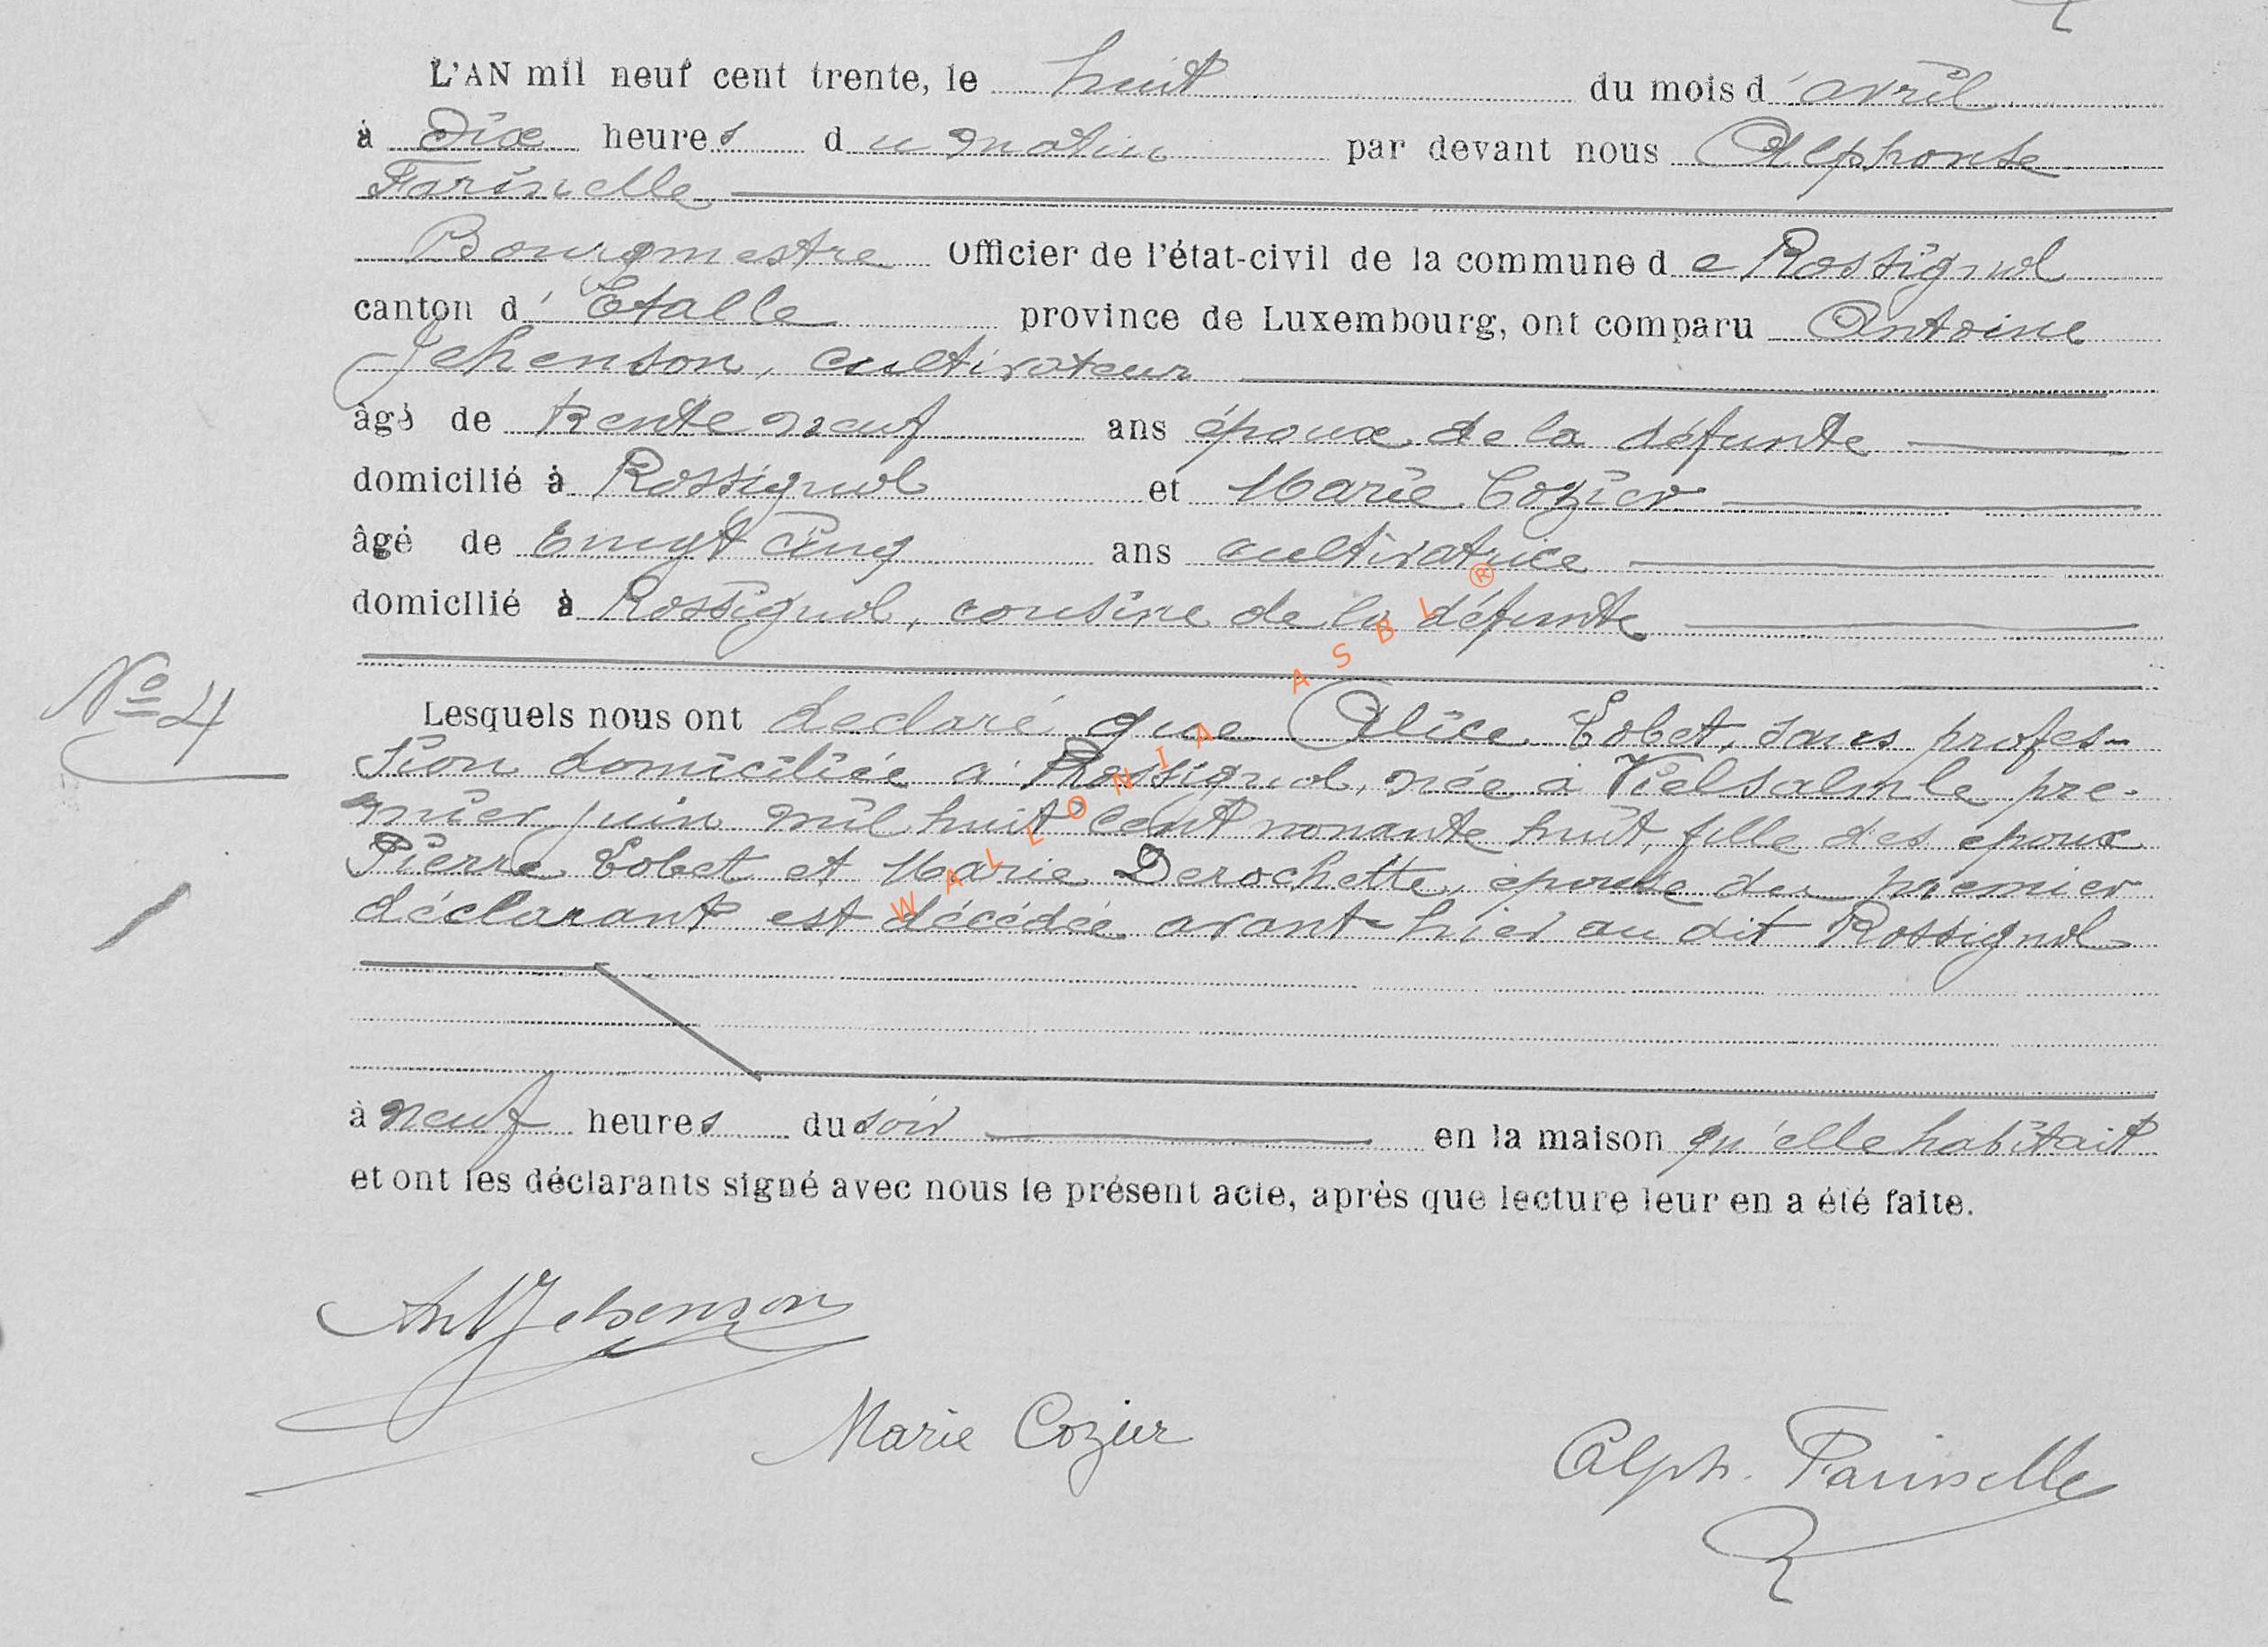 L'AN mil neuf cent trente, le huit du mois d'avril
à dix heures du matin par devant nous Alphonse
Farinelle
Bourgmestre Officier de l'état-civil de la commune de Rossignol
canton d'Etalle province de Luxembourg, ont comparu Antoine
Jehenson, cultivateur
âgé de trente neuf ans époux de la défunte
domicilié à Rossignol et Marie Cozier
âgé de vingt cinq ans cultivatrice
domicilié à Rossignol, cousine de la défunte
No 4
Lesquels nous ont declaré que Alice Lobet, sans profes-
sion domiciliée à Rossignol, née à Vielsalm le pre-
mier juin mil huit cent nonante huit, fille des époux
Pierre Lobet et Marie Derochette, épouse du premier
déclarant est décédée avant-hier au dit Rossignol
à neuf heures du soir en la maison qu'elle habitait
et ont les déclarants signé avec nous le présent acte, après que lecture leur en a été faite.
Ant Jehenson
Marie Cozier
Alph. Farinelle
WALLONIA ASBL ®